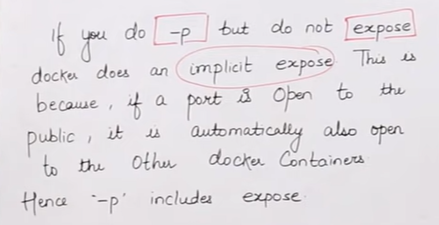 If you do -p but do not expose
docker does an implicit expose This is
because, if a port is Open to the
public, it is automatically also open
to the Other docker Containers
Hence '-p' includes expose.